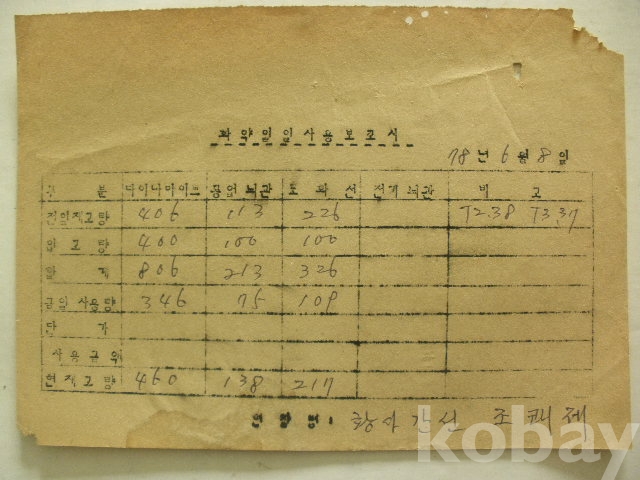 화약일일사용보고서
78년 6월 8일
구 분 다이나마이트 공업뇌관 도화선 전기뇌관 비 고
전일재고량 406 113 226 T2.38 T3.37
입고량 400 100 100
합 계 806 213 326
금일사용량 346 75 109
단 가
사용금액
현재고량 460 138 217
현장명: 황지간선
kobay